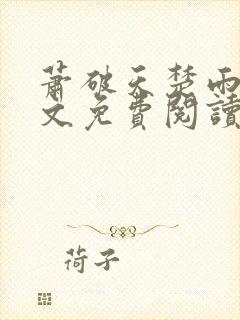 蕭破天楚雨
文免費閱讀
荷子